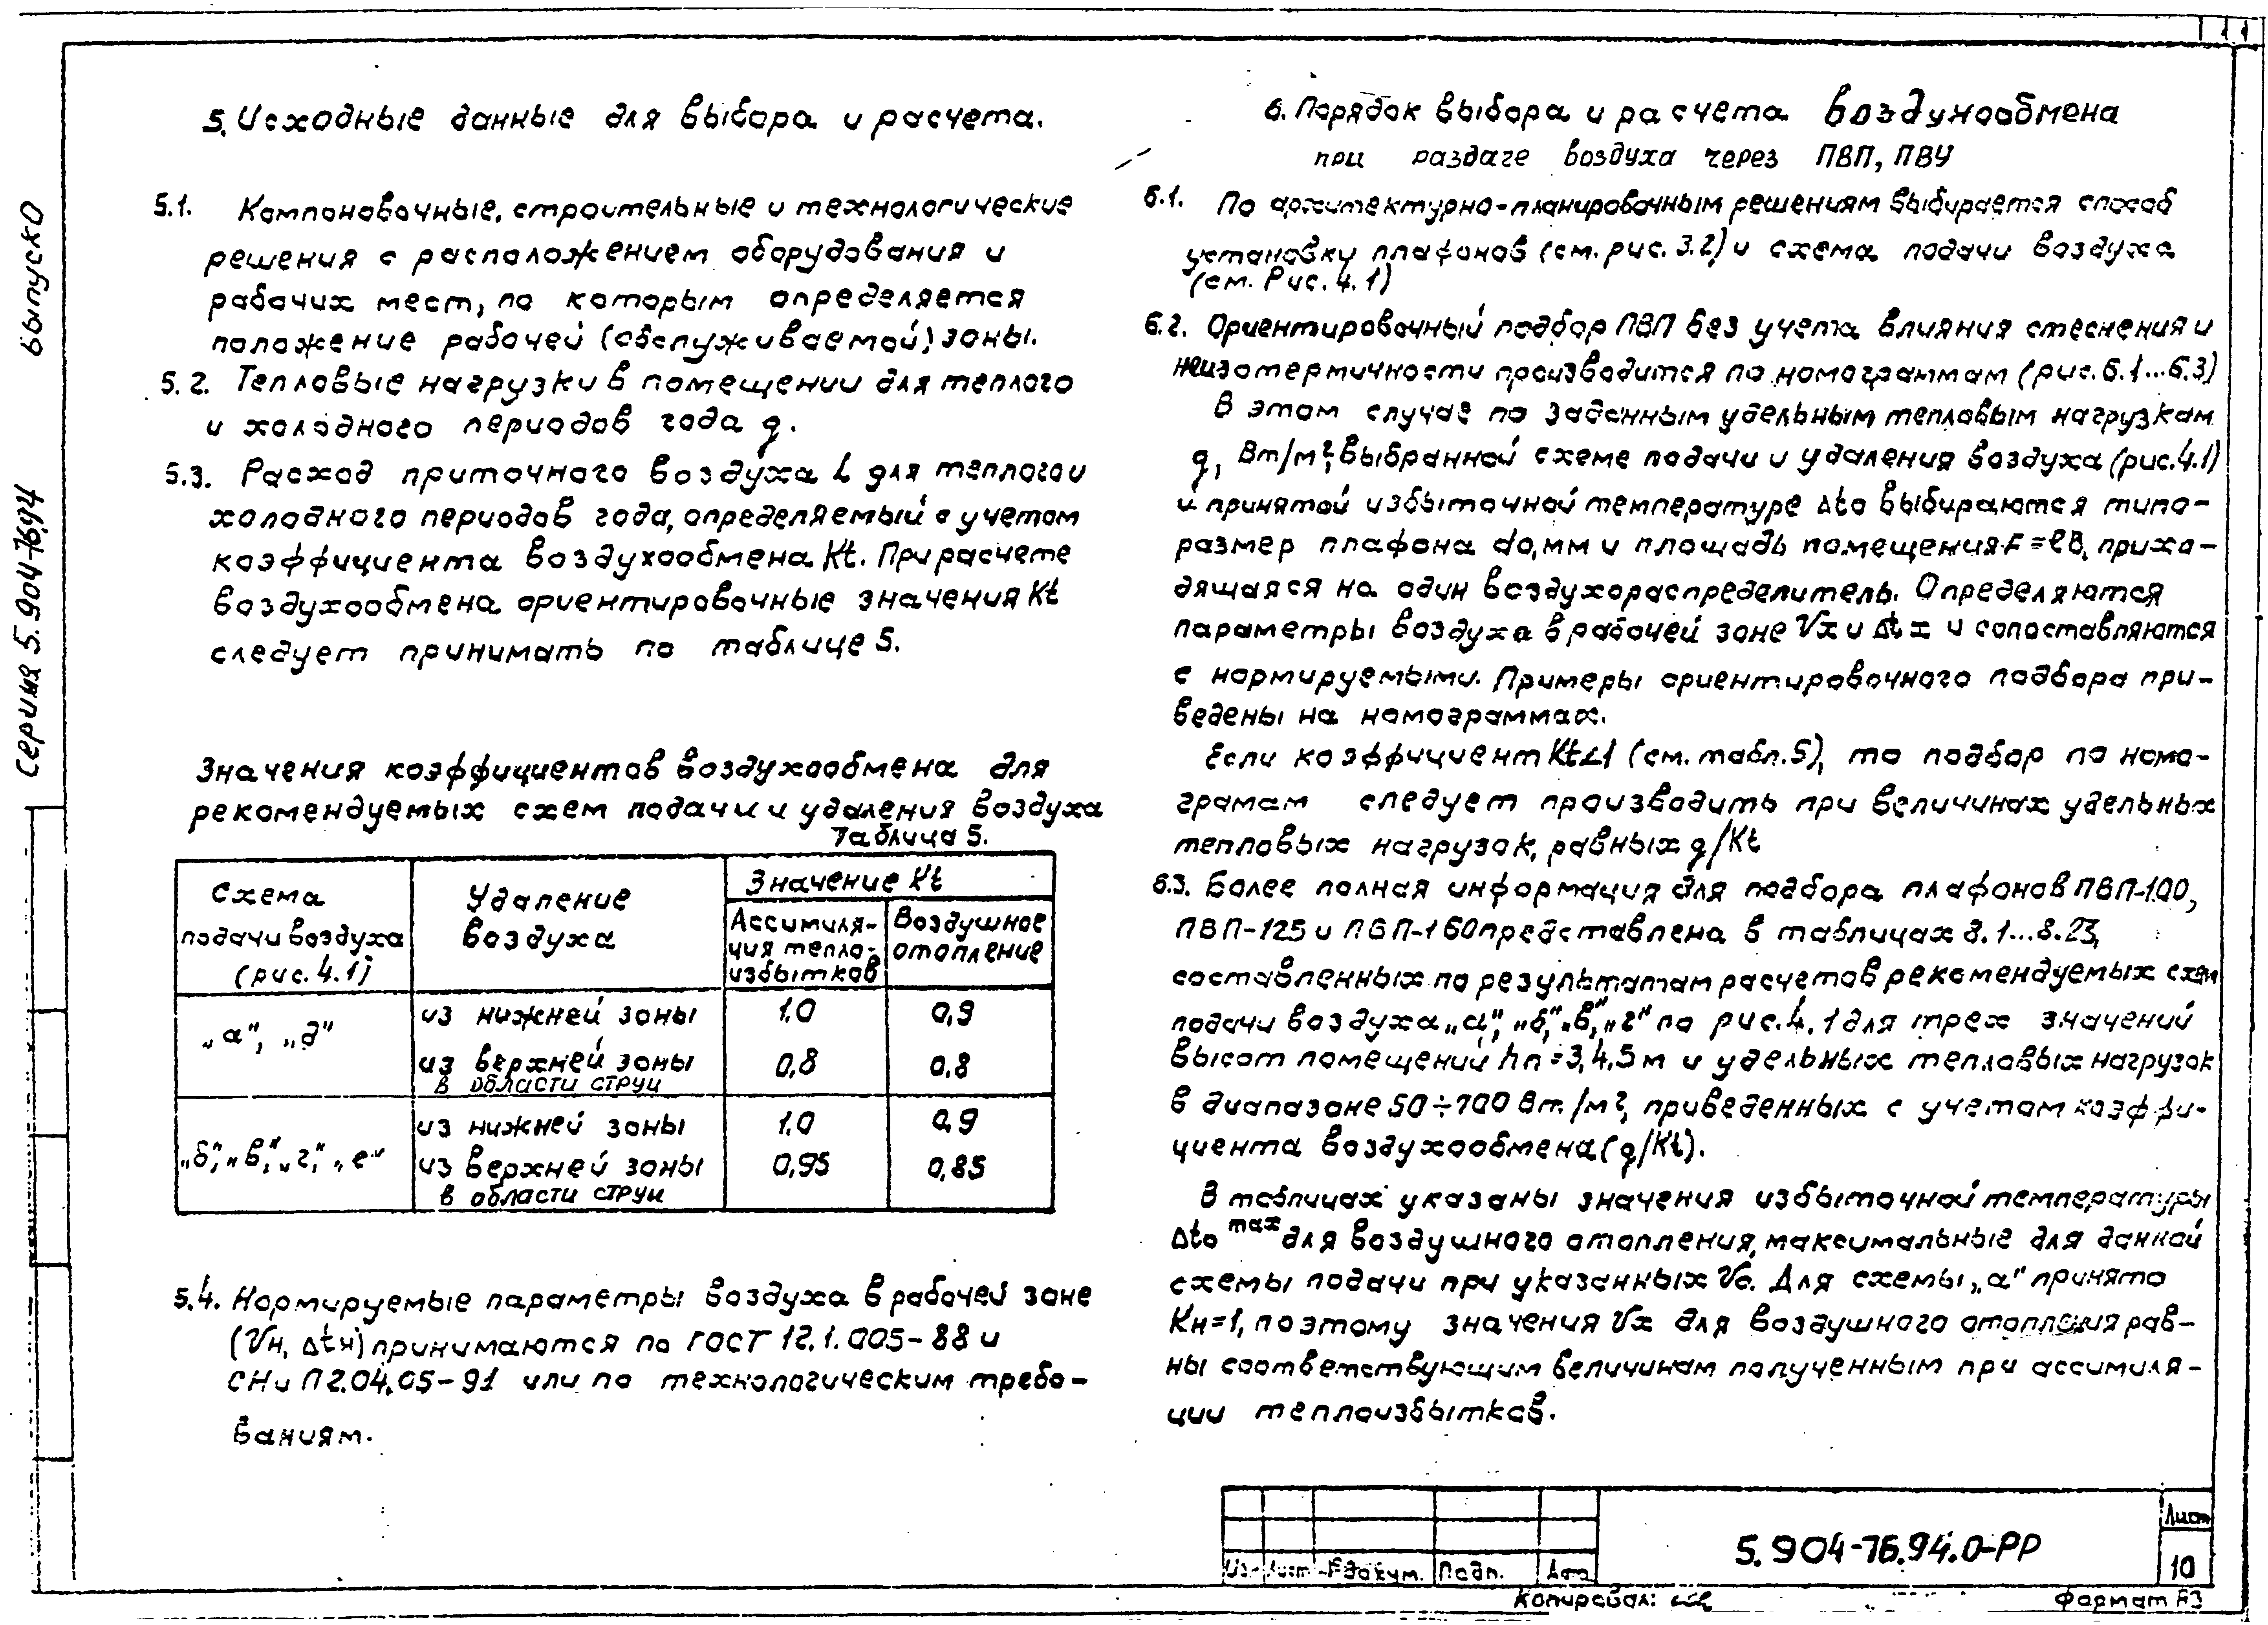 Серия 5.904-76.94 выпуск 0
5. Исходные данные для выбора и расчета.
5.1. Компоновочные, строительные и технологические
решения с расположением оборудования и
рабочих мест, по которым определяется
положение рабочей (обслуживаемой) зоны.
5.2. Тепловые нагрузки в помещении для теплого
и холодного периодов года q.
5.3. Расход приточного воздуха L для теплого и
холодного периодов года, определяемый с учетом
коэффициента воздухообмена Kt. При расчете
воздухообмена ориентировочные значения Kt
следует принимать по таблице 5.
Значения коэффициентов воздухообмена для
рекомендуемых схем подачи и удаления воздуха
Таблица 5.
Схема
подачи воздуха
(рис. 4.1)
Удаление
воздуха
Значение Kt
Ассимиля-
ция тепло-
избытков
Воздушное
отопление
„а", „д"
из нижней зоны 1.0 0,9
из верхней зоны 0,8 0,8
в области струи
„б", „в", „г", „е"
из нижней зоны 1.0 0,9
из верхней зоны 0,95 0,85
в области струи
5.4. Нормируемые параметры воздуха в рабочей зоне
(Vн, Δtн) принимаются по ГОСТ 12.1.005-88 и
СНиП 2.04.05-91 или по технологическим требо-
ваниям.
6. Порядок выбора и расчета воздухообмена
при раздаче воздуха через ПВП, ПВУ
6.1. По архитектурно-планировочным решениям выбирается способ
установку плафонов (см. рис. 3.2) и схема подачи воздуха
(см. Рис. 4.1)
6.2. Ориентировочный подбор ПВП без учета влияния стеснения и
неизотермичности производится по номограммам (рис. 6.1...6.3)
В этом случае по заданным удельным тепловым нагрузкам
q, Вт/м², выбранной схеме подачи и удаления воздуха (рис. 4.1)
и принятой избыточной температуре Δto выбираются типо-
размер плафона do, мм и площадь помещения F = lB, прихо-
дящаяся на один воздухораспределитель. Определяются
параметры воздуха в рабочей зоне Vx и Δtx и сопоставляются
с нормируемыми. Примеры ориентировочного подбора при-
ведены на номограммах.
Если коэффициент Kt<1 (см. табл. 5), то подбор по номо-
грамам следует производить при величинах удельных
тепловых нагрузок, равных q/Kt
6.3. Более полная информация для подбора плафонов ПВП-100,
ПВП-125 и ПВП-160 представлена в таблицах 8.1...8.23,
составленных по результатам расчетов рекомендуемых схем
подачи воздуха „а", „б", „в", „г" по рис. 4.1 для трех значений
высот помещений hп = 3,4,5 м и удельных тепловых нагрузок
в диапазоне 50÷700 Вт/м², приведенных с учетом коэффи-
циента воздухообмена (q/Kt).
В таблицах указаны значения избыточной температуры
Δto max для воздушного отопления, максимальные для данной
схемы подачи при указанных Vo. Для схемы „а" принято
Kн=1, поэтому значения Vx для воздушного отопления рав-
ны соответствующим величинам полученным при ассимиля-
ции теплоизбытков.
Лист
№ докум. Подп. Дата
5.904-76.94.0-РР
10
Копировал:
Формат А3